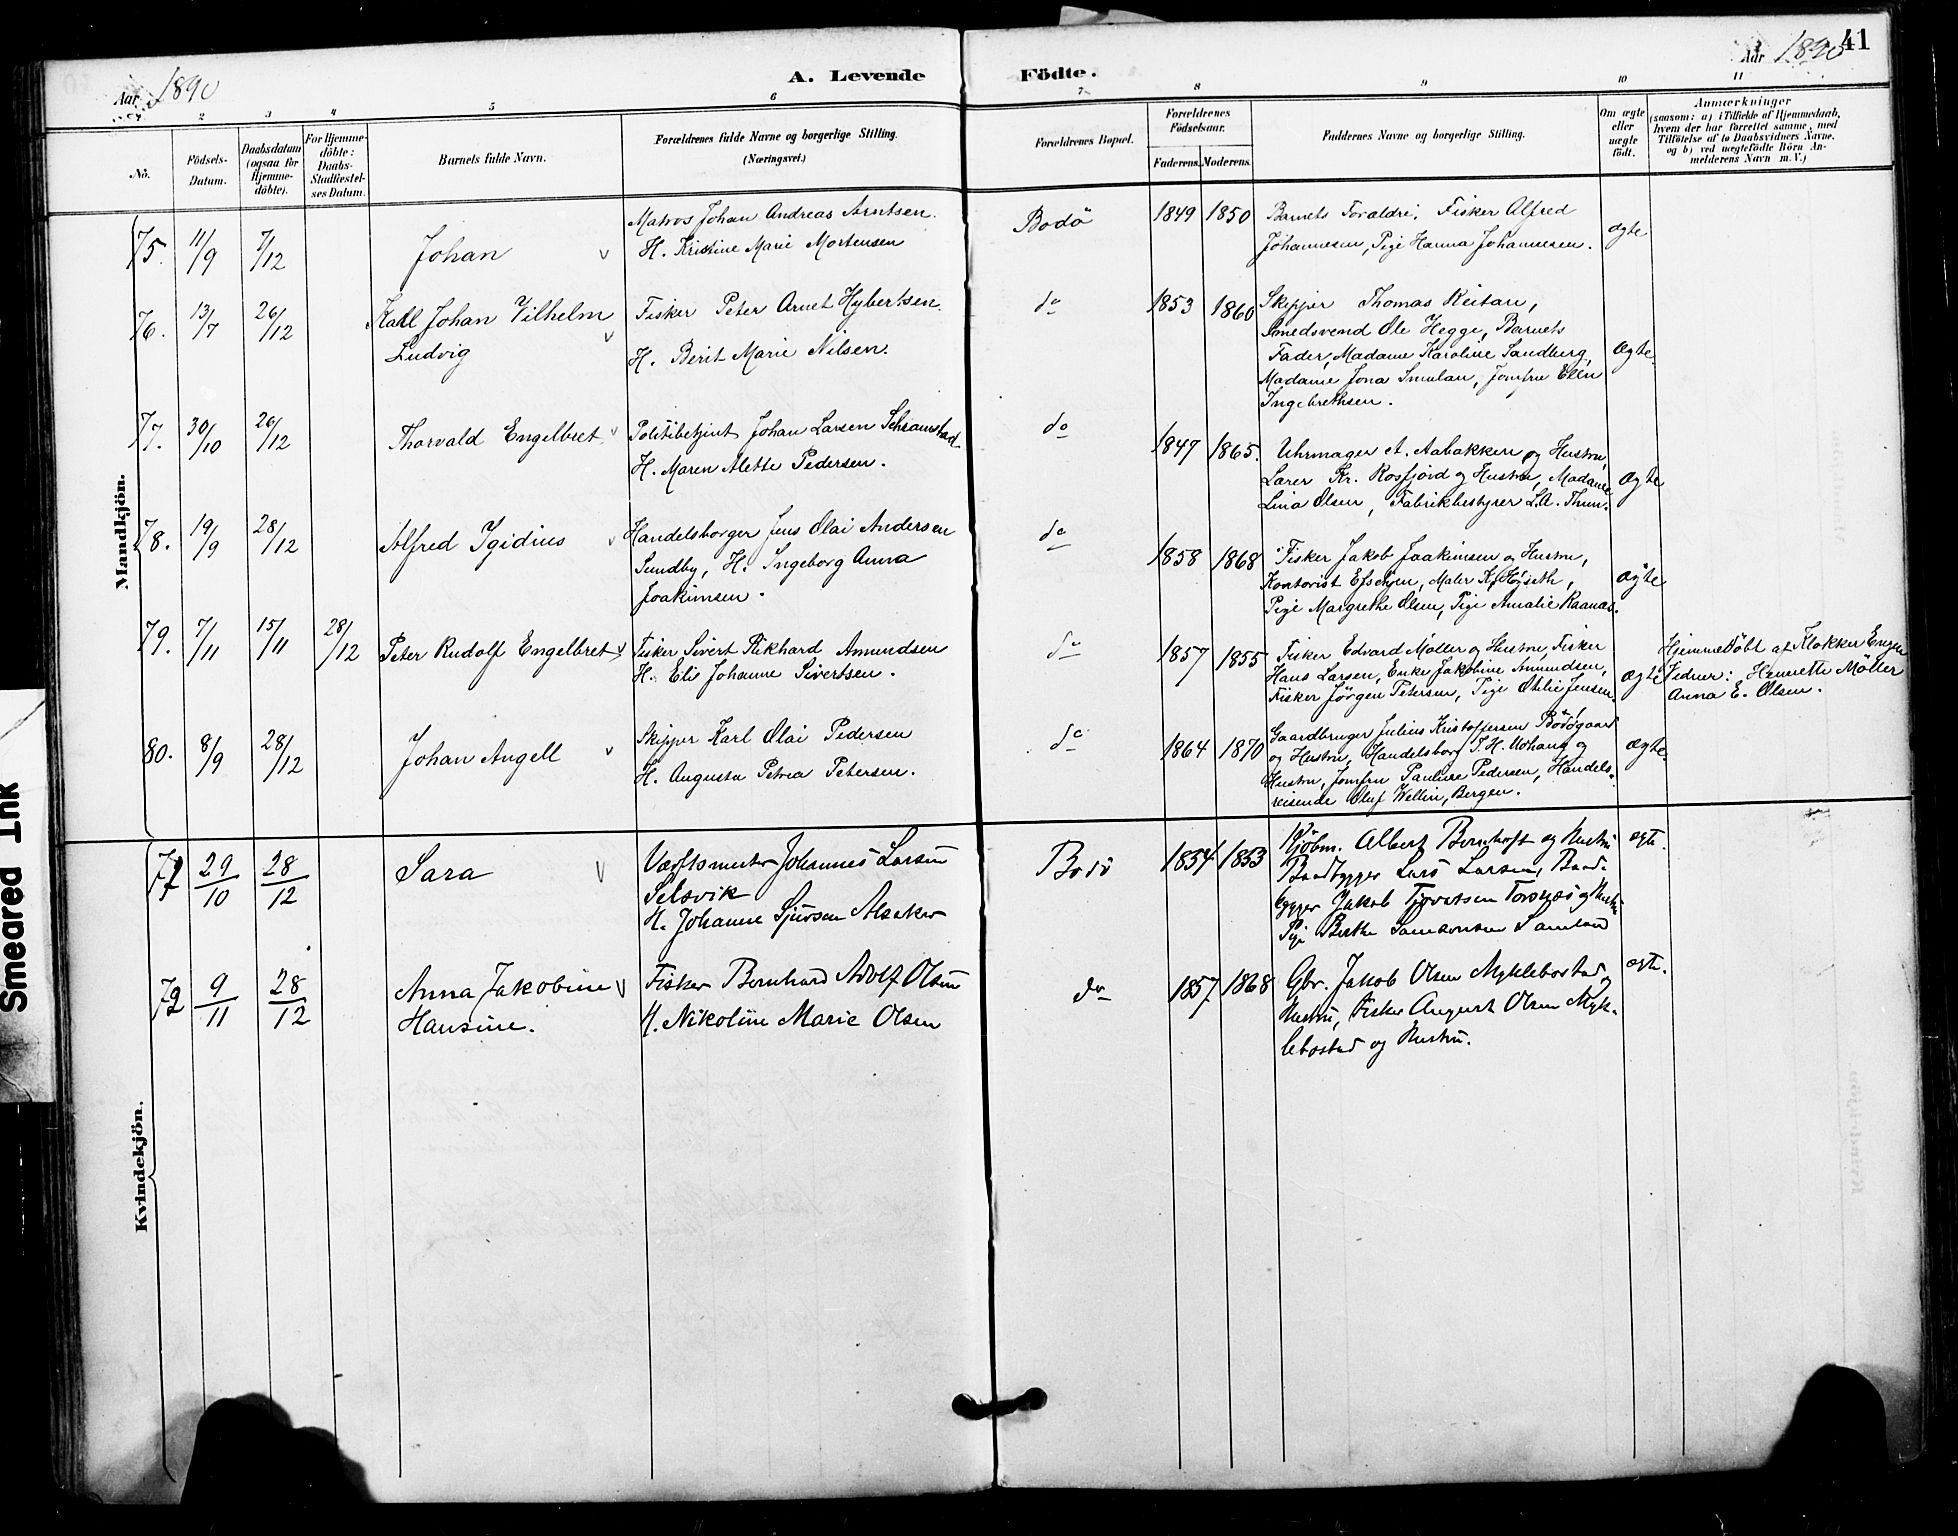 41
Aar 1890
A. Levende Födte.
Aar 1890
2 3 4 5 6 7 8 9 10 11
No.
Födsels-Datum.
Daabsdatum (ogsaa for Hjemme-döbte).
For Hjemme-döbte: Daabs-Stadfæstel-ses Datum.
Barnets fulde Navn.
Forældrenes fulde Navne og borgerlige Stilling.
(Næringsvei.)
Forældrenes Bopæl.
Forældrenes Födselsaar.
Faderens. Moderens.
Faddernes Navne og borgerlige Stilling.
Om ægte eller uægte födt.
Anmærkninger
(saasom: a) i Tilfælde af Hjemmedaab,
hvem der har forrettet samme, med
Tilföielse af to Daabsvidners Navne.
og b) ved uægtefödte Börn An-
melderens Navn m. V.)
Mandkjön.
75. 11/9 7/12 Johan
Matros Johan Andreas Arntsen.
H. Kristine Marie Mortensen
Bodö 1849 1850
Barnets Forældre, Fisker Alfred
Johannesen, Pige Hanna Johannesen.
ægte
76. 13/7 26/12 Karl Johan Vilhelm
Ludvig
Fisker Peter Arnet Hybertsen.
H. Berit Marie Nilsen.
do 1853 1860
Skipper Thomas Reitan,
Smedsvend Ole Hegge, Barnets
Fader, Madame Karoline Sandberg,
Madame Jona Smulan, Jomfru Ellen
Ingebrethsen.
Ægte.
77. 30/10 26/12 Thorvald Engelbret
Politibetjent Johan Larsen Schramstad
H. Maren Alette Pedersen.
do 1847 1865.
Uhrmager et. Aabakken og Hustru,
Lærer Kr. Rosfjord og Hustru, Madame
Lina Olsen, Fabrikbestyrer L.A. Thun.
Ægte
78. 19/9 28/12 Alfred Igidius
Handelsborger Jens Olai Andersen
Sundby, H. Ingeborg Anna
Joakimsen.
do 1858 1868
Fisker Jakob Joakimsen og Hustru,
Kontorist Efskjen, Maler K. Höyseth,
Pige Margrethe Olsen, Pige Amalie Raanas.
Ægte
79. 7/11 15/11 28/12 Peter Rudolf Engelbret
Fisker Sivert Rikhard Amundsen
H. Eli Johanne Sivertsen.
do 1857 1855
Fisker Edvard Möller og Hustru, Fisker
Hans Larsen, Enke Jakobine Amundsen,
Fisker Jörgen Petersen, Pige Otilie Jensen.
Ægte
Hjemmedöbt af Klokker Engen
Vidner: Henrette Möller
Anna E. Olsen.
80. 8/9 28/12 Johan Angell
Skipper Karl Olai Pedersen
H. Augusta Petrea Petersen.
do 1864 1870
Gaardbruger Julius Kristoffersen Bodøgaard
og Hustru, Handelsborg J. H. Mohaug og
Hustru, Jomfru Pauline Pedersen, Handels-
reisende Oluf Wellin, Bergen.
Ægte.
Kvindekjön.
71 29/10 28/12 Sara
Værftsmester Johannes Larsen
Selsvik
H. Johanne Sjursen Alsaker
Bodö 1854 1853
Kjöbm. Albert Bernhoft og Hustru
Baadbygger Lars Larsen, Baad-
bygger Jakob Tjovetsen Torsnæs og Hustru
Pige Berthe Samsonsen Samland
ægte.
72 9/11 28/12 Anna Jakobine
Hansine.
Fisker Bernhard Adolf Olsen
H. Nikoline Marie Olsen
do 1857 1868
Gbr. Jakob Olsen Myklebostad og
Hustru, Fisker August Olsen Myk-
lebostad og Hustru.
ægte.
Smeared Ink